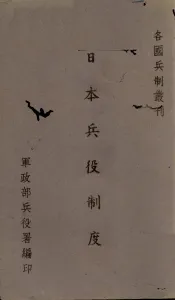 各國兵制叢刊
日本兵役制度
軍政部兵役署編印